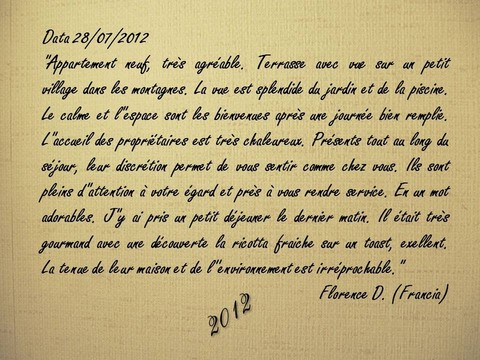 Data 28/07/2012
"Appartement neuf, très agréable. Terrasse avec vue sur un petit
village dans les montagnes. La vue est splendide du jardin et de la piscine.
Le calme et l"espace sont les bienvenues après une journée bien remplie.
L"accueil des propriétaires est très chaleureux. Présents tout au long du
séjour, leur discrétion permet de vous sentir comme chez vous. Ils sont
pleins d"attention à votre égard et près à vous rendre service. En un mot
adorables. J"y ai pris un petit déjeuner le dernier matin. Il était très
gourmand avec une découverte la ricotta fraiche sur un toast, exellent.
La tenue de leur maison et de l"environnement est irréprochable."
Florence D. (Francia)
2012